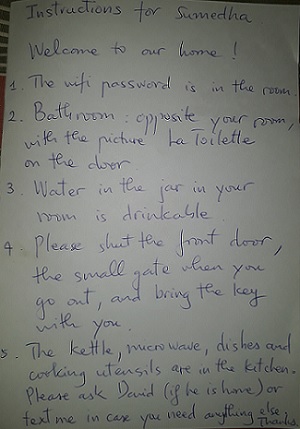 Instructions for Sumedha.
Welcome to our home!
1. The wifi password is in the room.
2. Bathroom: opposite your room,
with the picture La Toilette
on the door
3. Water in the jar in your
room is drinkable
4. Please shut the front door,
the small gate when you
go out, and bring the key
with you.
5. The kettle, microwave, dishes and
cooking utensils are in the kitchen.
Please ask David (if he is home) or
text me in case you need anything else. Thanks